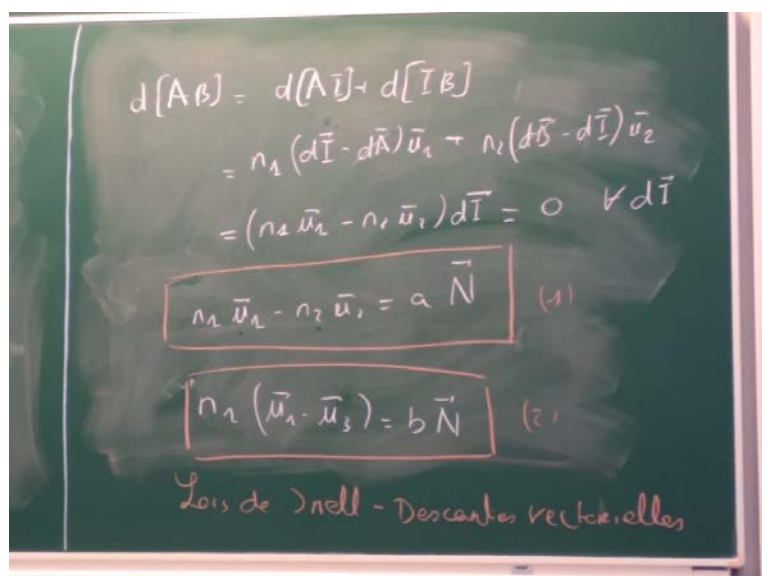 d[AB] = d[AI] + d[IB]
= n₁(dI⃗ - dA⃗)u⃗₁ + n₂(dB⃗ - dI⃗)u⃗₂
= (n₁u⃗₁ - n₂u⃗₂)dI⃗ = 0 ∀dI⃗
n₁u⃗₁ - n₂u⃗₂ = a N⃗ (1)
n₁(u⃗₁ - u⃗₃) = b N⃗ (2)
Lois de Snell - Descartes vectorielles